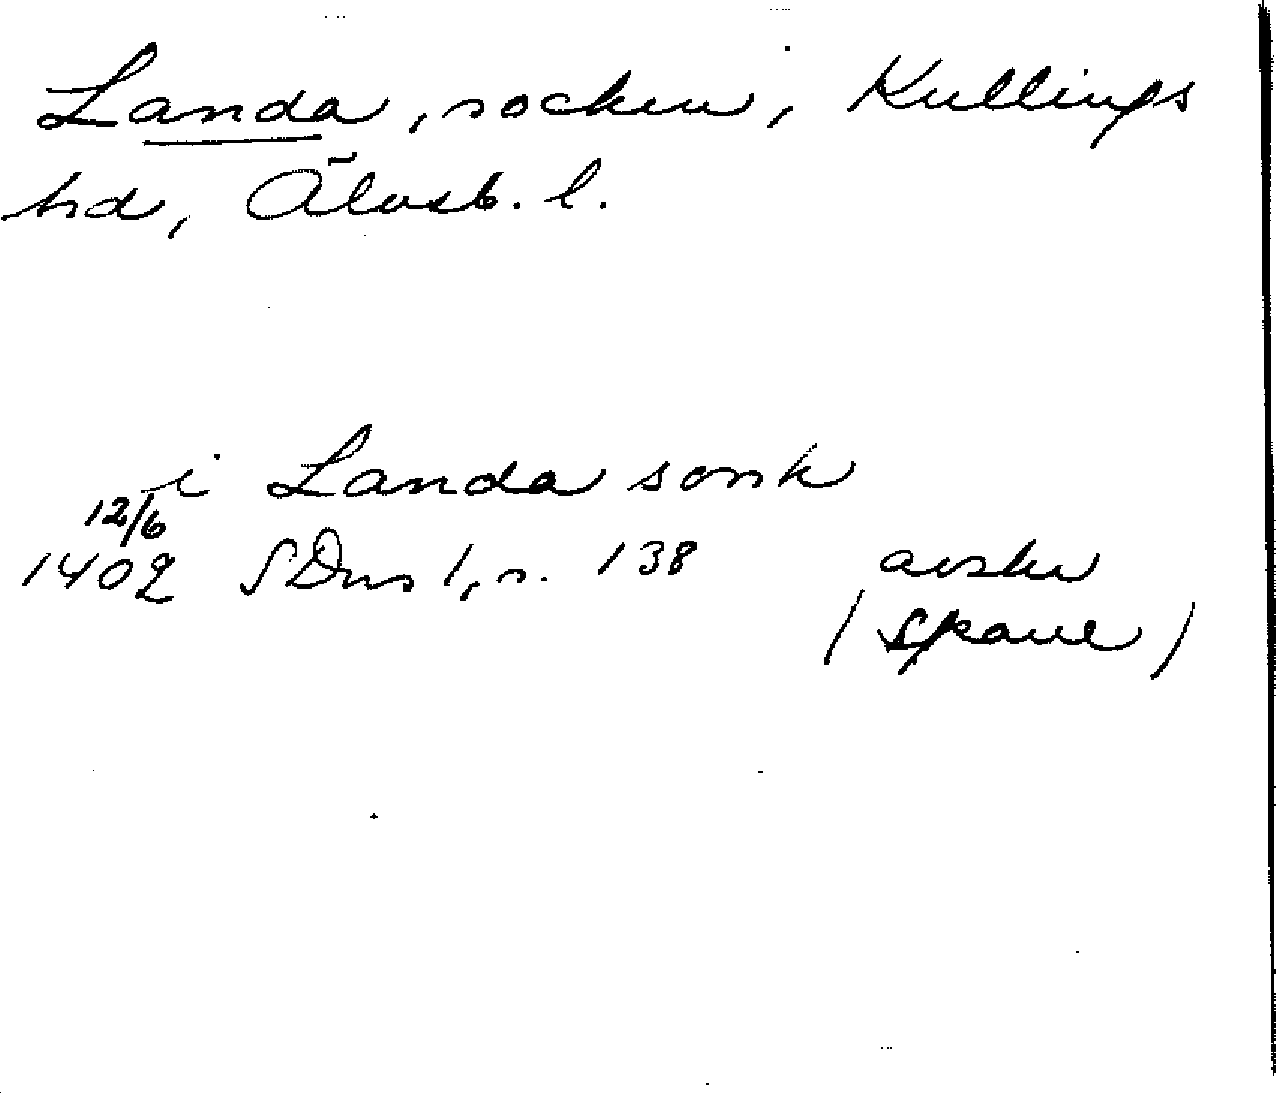 Landa, socken, Kullings
hd, Älvsb. l.
i Landa sonk
12/6
1402 SDns 1, s. 138 avskr
(Spaue)